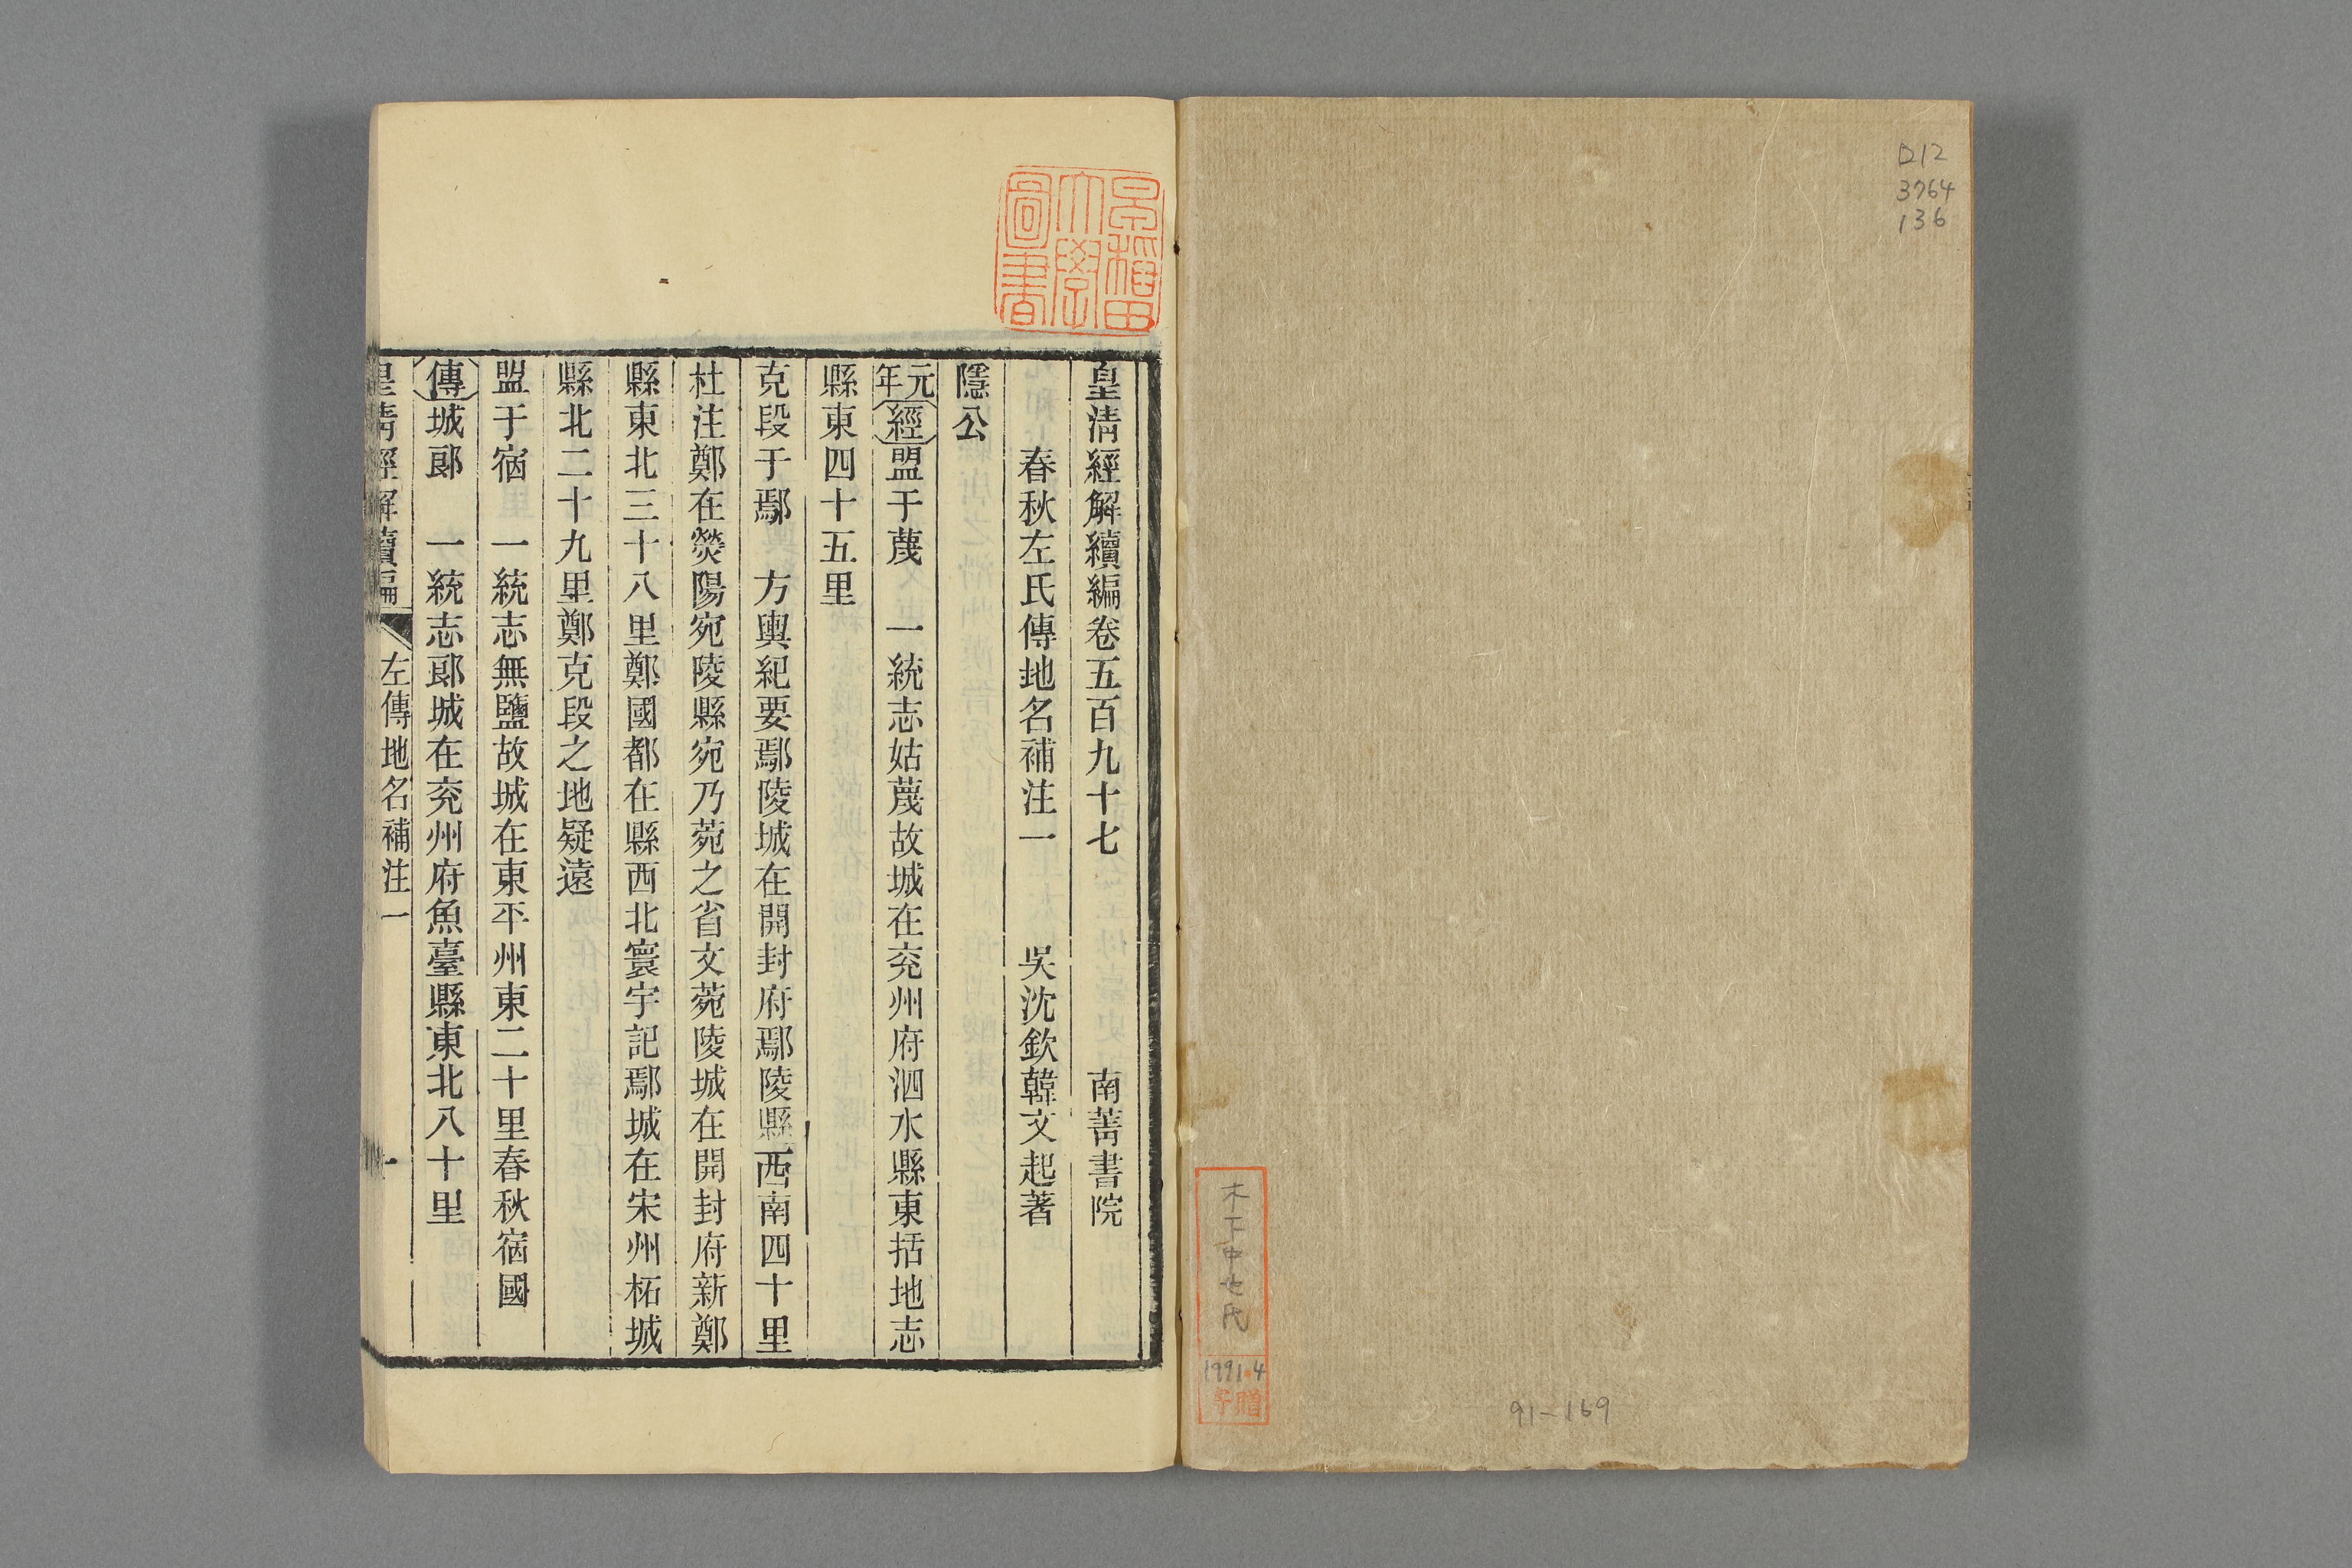 D12
3764
136
木下中七氏
1991.4
寄贈
91-169
早稲田
大學
圖書
皇清經解續編卷五百九十七　南菁書院
春秋左氏傳地名補注一　吳沈欽韓文起著
隱公
元年經盟于蔑　一統志姑蔑故城在兗州府泗水縣東括地志
縣東四十五里
克段于鄢　方輿紀要鄢陵城在開封府鄢陵縣西南四十里
杜注鄭在熒陽宛陵縣宛乃菀之省文菀陵城在開封府新鄭
縣東北三十八里鄭國都在縣西北寰宇記鄢城在宋州柘城
縣北二十九里鄭克段之地疑遠
盟于宿　一統志無鹽故城在東平州東二十里春秋宿國
傳城郎　一統志郎城在兗州府魚臺縣東北八十里
皇清經解續編　左傳地名補注一　一